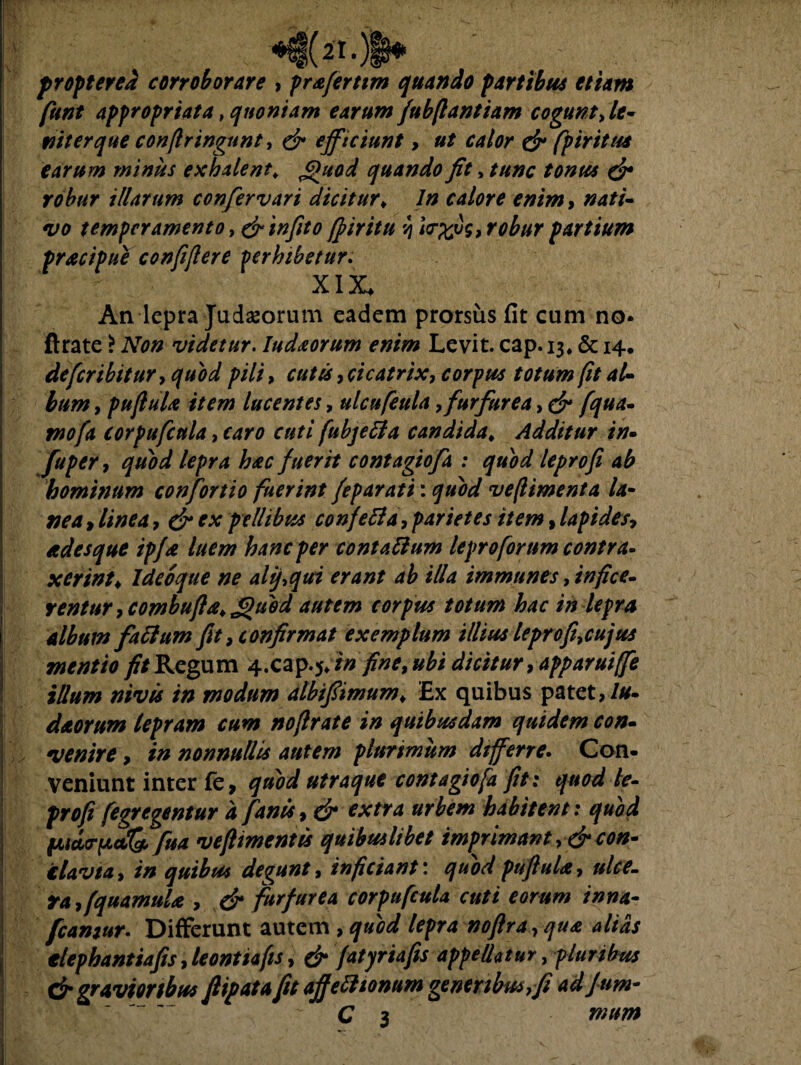 (21.)
propterea corroborare , præsertim quando partibus etiam
sunt appropriata, quoniam earum substantiam cogunt, le-
niterque constringunt, & efficiunt , ut calor & spiritus
earum minùs exhalent. Quod quando fit, tunc tonus &
robur illarum conservari dicitur. In calore enim, nati-
vo temperamento, & insito spiritu ἡ ἰσχὺς, robur partium
præcipuè consistere perhibetur.
XIX.
An lepra Judæorum eadem prorsùs sit cum no-
strate ? Non videtur. Iudæorum enim Levit. cap. 13. & 14.
describitur, quòd pili, cutis, cicatrix, corpus totum sit al-
bum, pustulæ item lucentes, ulcuscula, furfurea, & squa-
mosa corpuscula, caro cuti subjecta candida. Additur in-
super, quòd lepra hæc fuerit contagiosa : quòd leprosi ab
hominum consortio fuerint separati : quòd vestimenta la-
nea, linea, & ex pellibus confecta, parietes item, lapides,
ædesque ipsæ luem hanc per contactum leprosorum contra-
xerint. Ideóque ne alij, qui erant ab illa immunes, infice-
rentur, combusta. Quòd autem corpus totum hac in lepra
album factum sit, confirmat exemplum illius leprosi, cujus
mentio fit Regum 4. cap. 5. in fine, ubi dicitur, apparuisse
illum nivis in modum albissimum. Ex quibus patet, Iu-
dæorum lepram cum nostrate in quibusdam quidem con-
venire , in nonnullis autem plurimùm differre. Con-
veniunt inter se, quòd utraque contagiosa sit: quod le-
prosi segregentur à sanis, & extra urbem habitent : quòd
μιάσματα sua vestimentis quibuslibet imprimant, & con-
clavia, in quibus degunt, inficiant : quòd pustulæ, ulce-
ra, squamulæ , & furfurea corpuscula cuti eorum inna-
scantur. Differunt autem , quòd lepra nostra, quæ aliàs
elephantiasis, leontiasis, & satyriasis appellatur, pluribus
& gravioribus stipata sit affectionum generibus, si ad sum-
C 3 mum